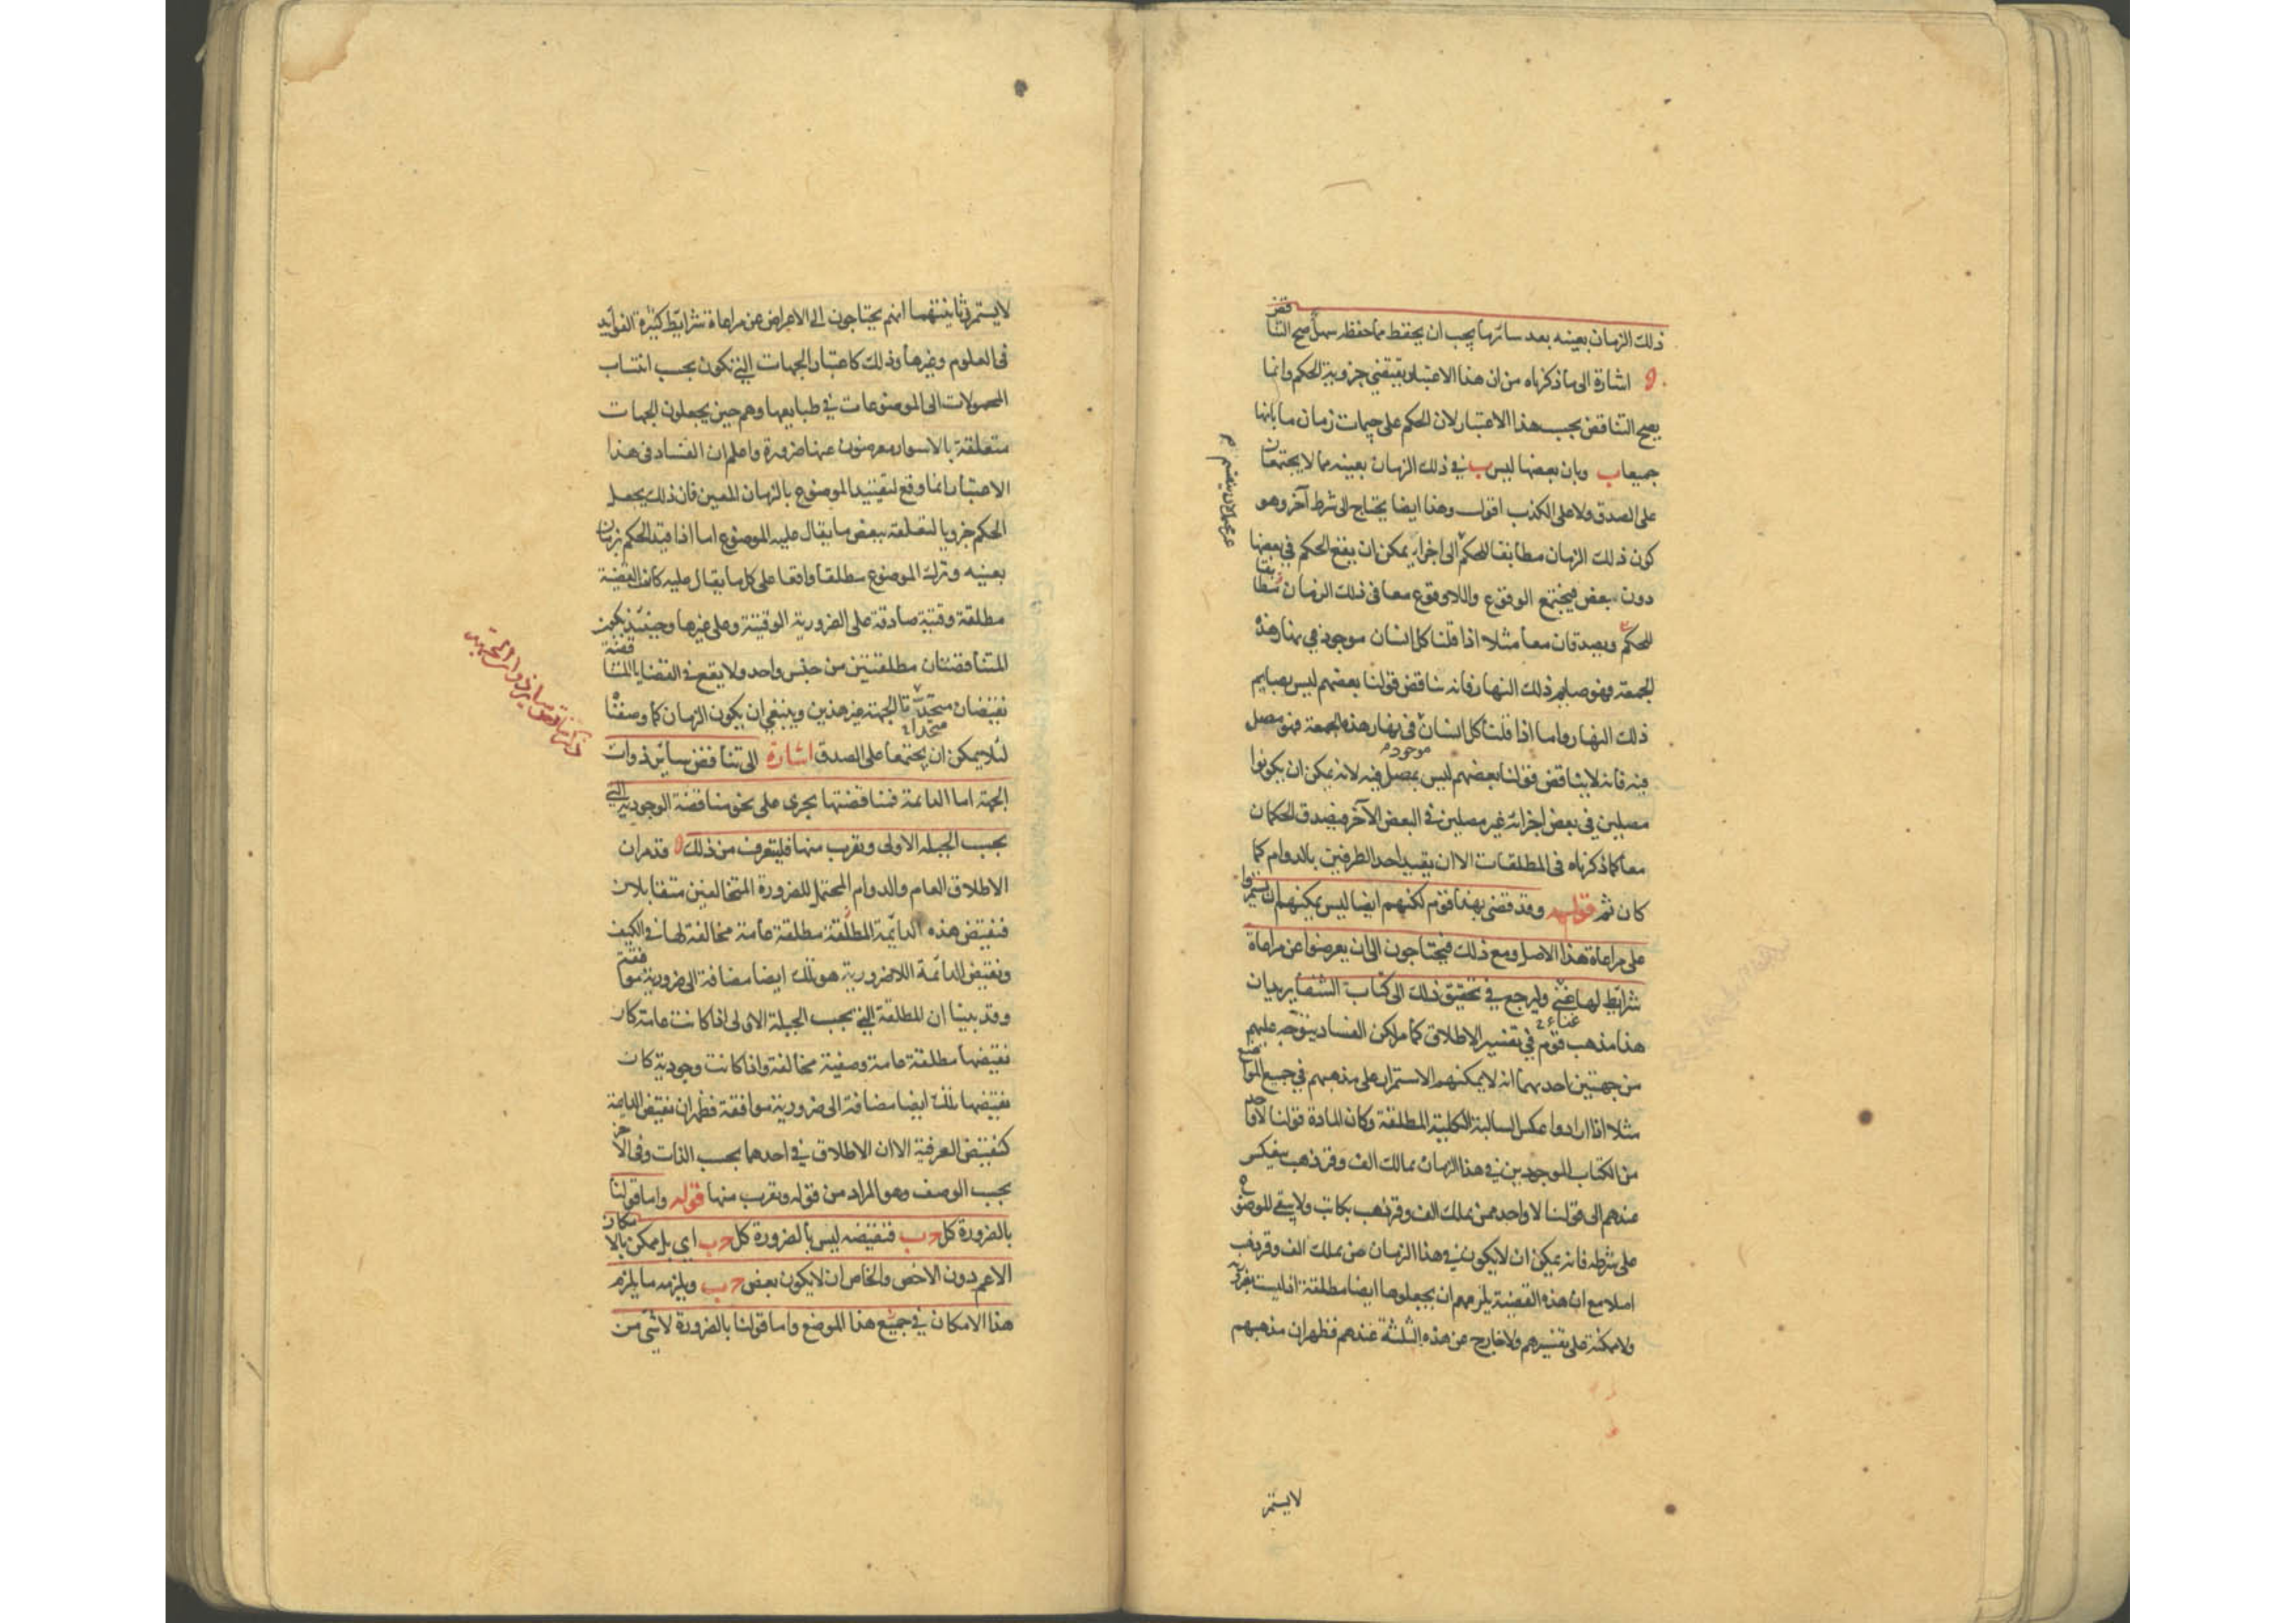 ذلك الزمان بعينه بعد سائرها يجب ان يحفظ مما حفظه سهل صح التناقض
اشارة الى ما ذكرناه من ان هذا الاعتبار يقتضي جزوية الحكم وانما
يصح التناقض بحسب هذا الاعتبار لان الحكم على جيمات زمان ما بانها
جميعا ب وبان بعضها ليس ب في ذلك الزمان بعينه مما لا يجتمعان
على الصدق ولا على الكذب اقول وهذا ايضا يحتاج الى شرط آخر وهو
كون ذلك الزمان مطابقا للحكم الى اجزاء يمكن ان يقع الحكم في بعضها
دون بعض فيجتمع الوقوع واللا وقوع معا في ذلك الزمان مطابقا
للحكم ويصدقان معا مثلا اذا قلنا كل انسان موجود في نهار هذه
الجمعة فهو صايم ذلك النهار فانه يناقض قولنا بعضهم ليس بصايم
ذلك النهار واما اذا قلنا كل انسان في نهار هذه الجمعة فهو مصل
موجود
فيه فانه لا يناقض قولنا بعضهم ليس بمصل فيه لانه يمكن ان يكونوا
مصلين في بعض اجزائه غير مصلين في البعض الآخر فيصدق الحكمان
معا كما ذكرناه في المطلقات الا ان يقيد احد الطرفين بالدوام كما
كان ثم قوله وقد قضى بهذا قوم لكنهم ايضا ليس يمكنهم ان يستمروا
على مراعاة هذا الاصل ومع ذلك فيحتاجون الى ان يعرضوا عن مراعاة
شرايط لها غنى وليرجع في تحقيق ذلك الى كتاب الشفا يريد بيان
غناء
هذا مذهب قوم في تفسير الاطلاق كما مر لكن الفساد يتوجه عليهم
من جهتين احديهما انه لا يمكنهم الاستمرار على مذهبهم في جميع المواضع
مثلا اذا ارادوا عكس السالبة الكلية المطلقة وكان المادة قولنا لا واحد
من الكتاب الموجودين في هذا الزمان بمالك الف وقر ذهب ينعكس
عندهم الى قولنا لا واحد ممن يملك الف وقر ذهب بكاتب ولا يبقى الموضوع
على شرطه فانه يمكن ان لا يكون في هذا الزمان من يملك الف وقر ذهب
اصلا مع ان هذه القضية يلزمهم ان يجعلوها ايضا مطلقة اذ ليست بضرورية
ولا ممكنة على تفسيرهم ولا خارج عن هذه الثلثة عندهم فظهر ان مذهبهم
لا يستمر
لا يستمر وثانيتهما انهم يحتاجون الى الاعراض عن مراعاة شرايط كثيرة الفوايد
في العلوم وغيرها وذلك كاعتبار الجهات التي تكون بحسب انتساب
المحمولات الى الموضوعات في طبايعها وهم حين يجعلون الجهات
متعلقة بالاسوار معرضون عنها ضرورة واعلم ان الفساد في هذا
الاعتبار انما وقع لتقييد الموضوع بالزمان المعين فان ذلك يجعل
الحكم جزويا لتعلقه ببعض ما يقال عليه الموضوع اما اذا قيد الحكم بزمان
بعينه وترك الموضوع مطلقا واقعا على كل ما يقال عليه كانت القضية
مطلقة وقتية صادقة على الضرورية الوقتية وعلى غيرها وحينئذ يكون
المتناقضتان مطلقتين من جنس واحد ولا يقع في القضايا المتناقضة
نقيضان متحدتا الجهة غير هذين وينبغي ان يكون الزمان كما وصفنا
متحدا
لئلا يمكن ان يجتمعا على الصدق اشارة الى تناقض سائر ذوات
الجهة اما الدائمة فمناقضتها يجرى على نحو مناقضة الوجودية التي
بحسب الجيلة الاولى وتقرب منها فليتعرف من ذلك قد مر ان
الاطلاق العام والدوام المحتمل للضرورة المتخالفين متقابلان
فنقيض هذه الدائمة المطلقة مطلقة عامة مخالفة لها في الكيف
ونقيض الدائمة اللاضرورية هو تلك ايضا مضافة الى ضرورية موافقة
وقد بينا ان المطلقة التي بحسب الجيلة الاولى اذا كانت عامة كان
نقيضها مطلقة عامة وصفية مخالفة واذا كانت وجودية كان
نقيضها تلك ايضا مضافة الى ضرورية موافقة فظهر ان نقيض الدايمة
كنقيض العرفية الا ان الاطلاق في احدهما بحسب الذات وفي الآخر
بحسب الوصف وهو المراد من قوله وتقرب منها قوله واما قولنا
بالضرورة كل ج ب فنقيضه ليس بالضرورة كل ج ب اي بل ممكن بالامكان
الاعم دون الاخص والخاص ان لا يكون بعض ج ب ويلزمه ما يلزم
هذا الامكان في جميع هذا الموضع واما قولنا بالضرورة لا شئ من